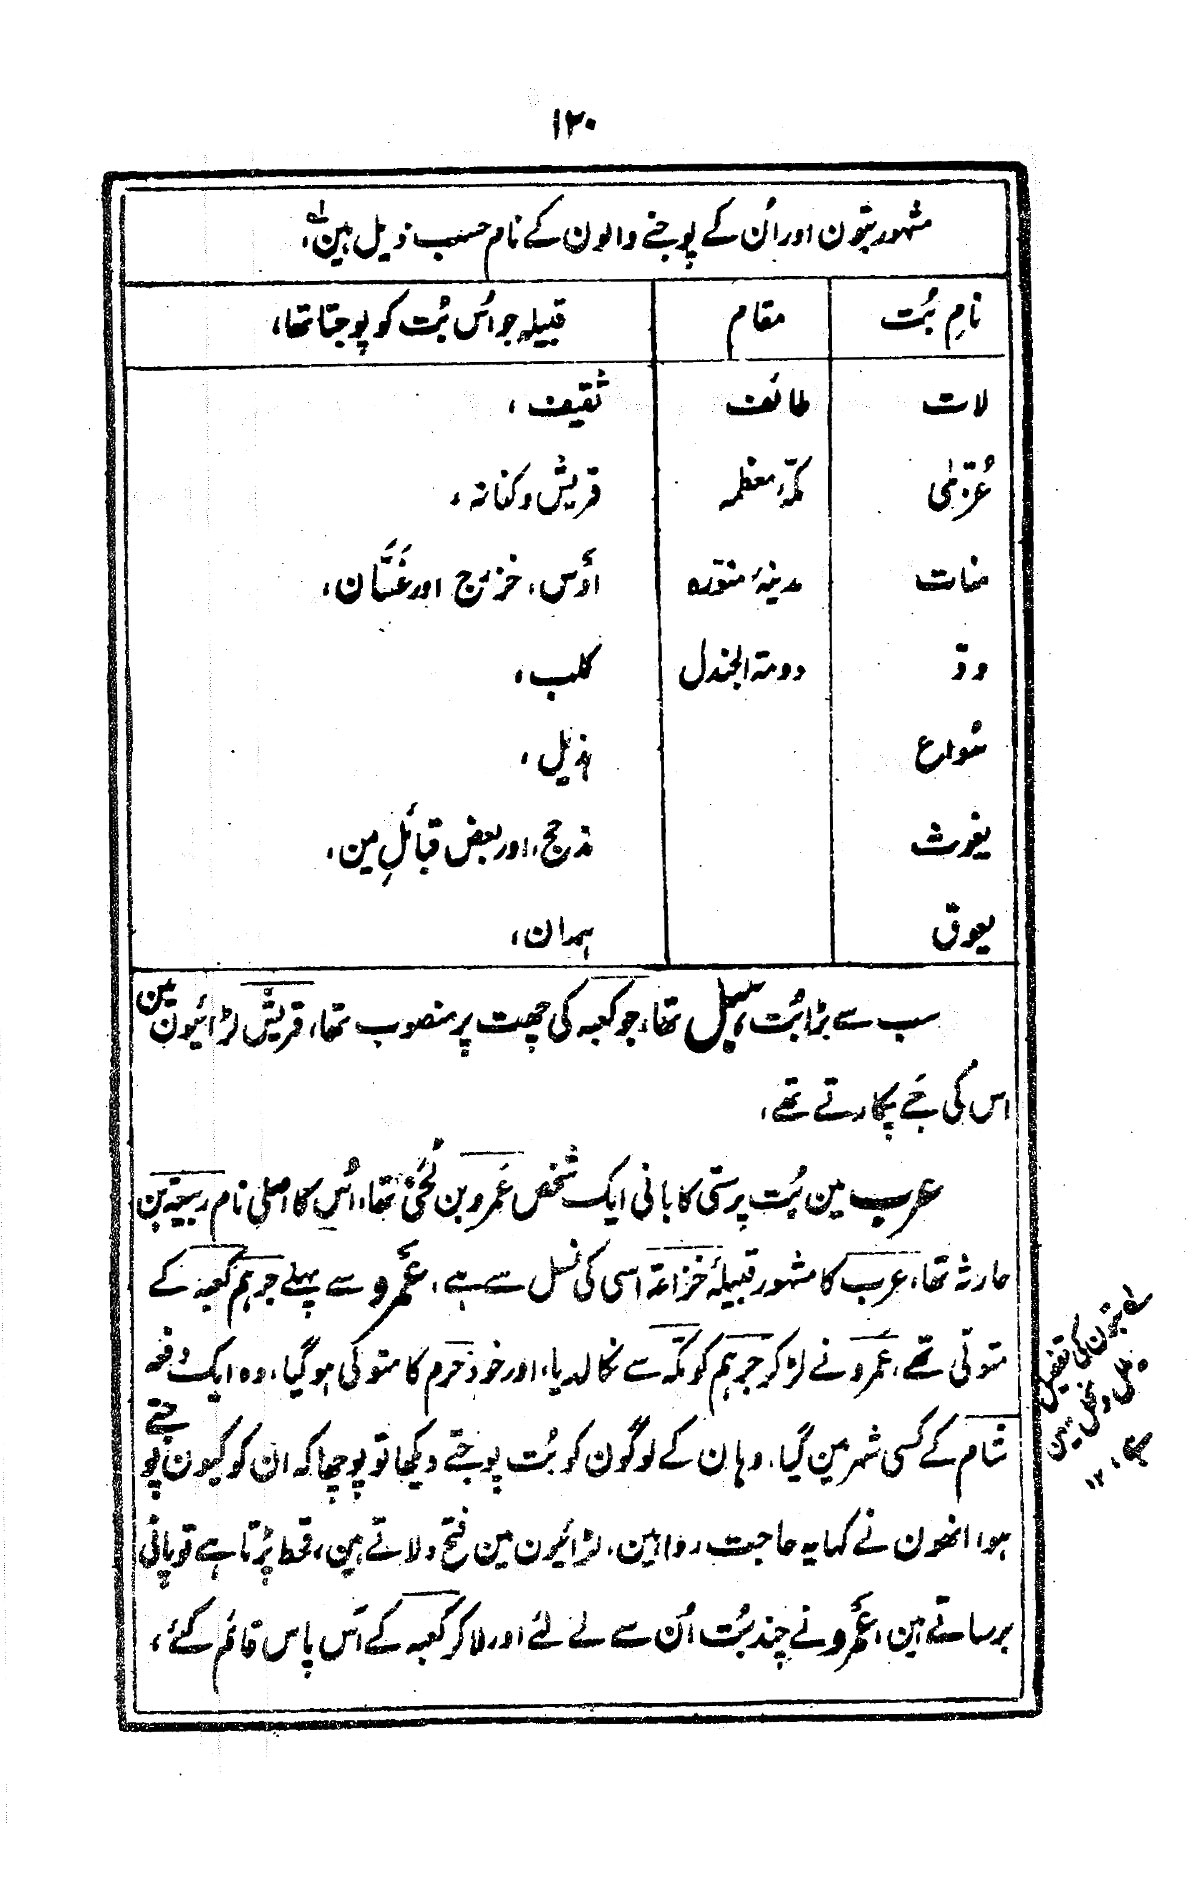 ۱۲۰
مشہور بتون اور اُن کے پوجنے والون کے نام حسب ذیل ہین لہ،
نامِ بُت مقام قبیلہ جو اُس بُت کو پوجتا تھا،
لات طائف ثقیف،
عُزّیٰ مکّۂ معظمہ قریش و کنانہ،
منات مدینۂ منوّرہ اَوس، خزرج اور غَسَّان،
ودّ دومۃ الجندل کلب،
سُواع ہذیل،
یغوث مذحج، اور بعض قبائلِ یمن،
یعوق ہمدان،
سب سے بڑا بُت ہبل تھا، جو کعبہ کی چھت پر منصوب تھا، قریش لڑائیون مین
اس کی جَے پکارتے تھے،
عرب مین بُت پرستی کا بانی ایک شخص عَمرو بن لُحَیّ تھا، اُس کا اصلی نام ربیعۃ بن
حارثہ تھا، عرب کا مشہور قبیلۂ خزاعۃ اسی کی نسل سے ہے، عَمرو سے پہلے جرہم کعبہ کے
متولّی تھے، عمرو نے لڑ کر جرہم کو مکّہ سے نکالدیا، اور خود حرم کا متولّی ہوگیا، وہ ایک دفعہ
شام کے کسی شہر مین گیا، وہان کے لوگون کو بُت پوجتے دیکھا تو پوچھا کہ ان کو کیون پوجتے
ہو؟ انھون نے کہا یہ حاجت روا ہین، لڑائیون مین فتح دلاتے ہین، قحط پڑتا ہے تو پانی
برساتے ہین، عَمرو نے چند بُت اُن سے لے لئے اور لا کر کعبہ کے آس پاس قائم کئے،
لہ بتون کی تفصیل
ملل و نحل مین
ہے، ۱۲